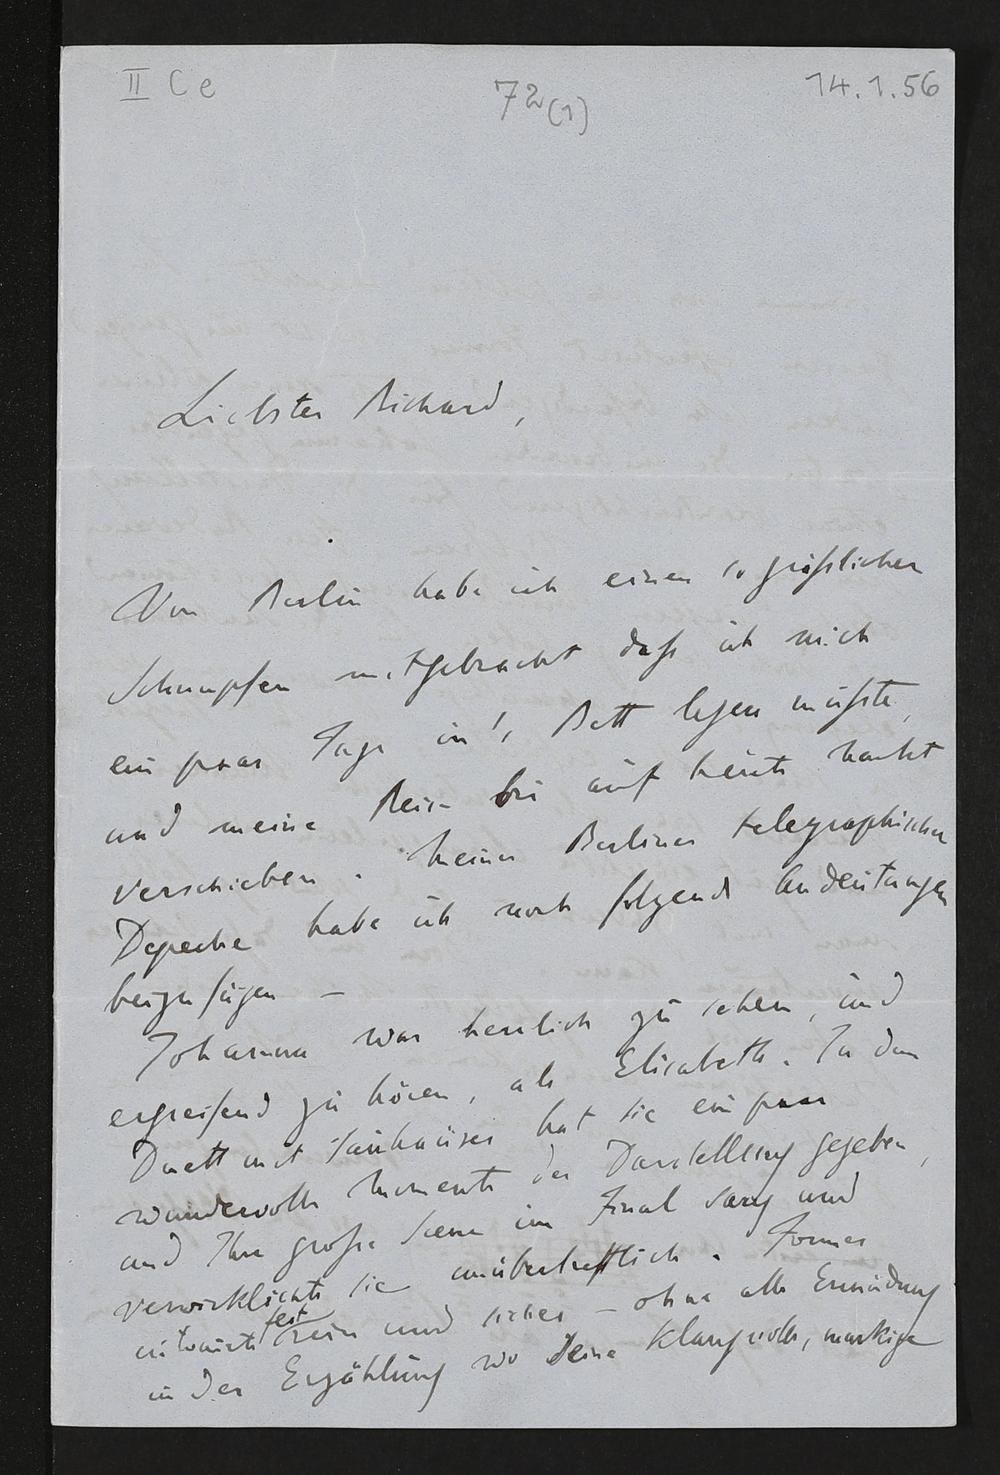 II C e
72(1)
14.1.56
Liebster Richard,
Von Berlin habe ich einen so gräßlichen
Schnupfen mitgebracht daß ich mich
ein paar Tage in's Bett legen müßte,
und meine Reise bis auf heute nacht
verschieben. Meiner Berliner telegraphischen
Depeche habe ich noch folgende Andeutungen
beizufügen –
Johanna war herrlich zu sehen, und
ergreifend zu hören, als Elisabeth. In dem
Duett mit Tanhäuser hat sie ein paar
wundervolle Momente der Darstellung gegeben,
und Ihre große Scene im Final sang und
verwirklichte sie unübertrefflich. Formes
intonirte fest rein und sicher – ohne alle Ermüdung
in der Erzählung wo seine klangvolle, markige